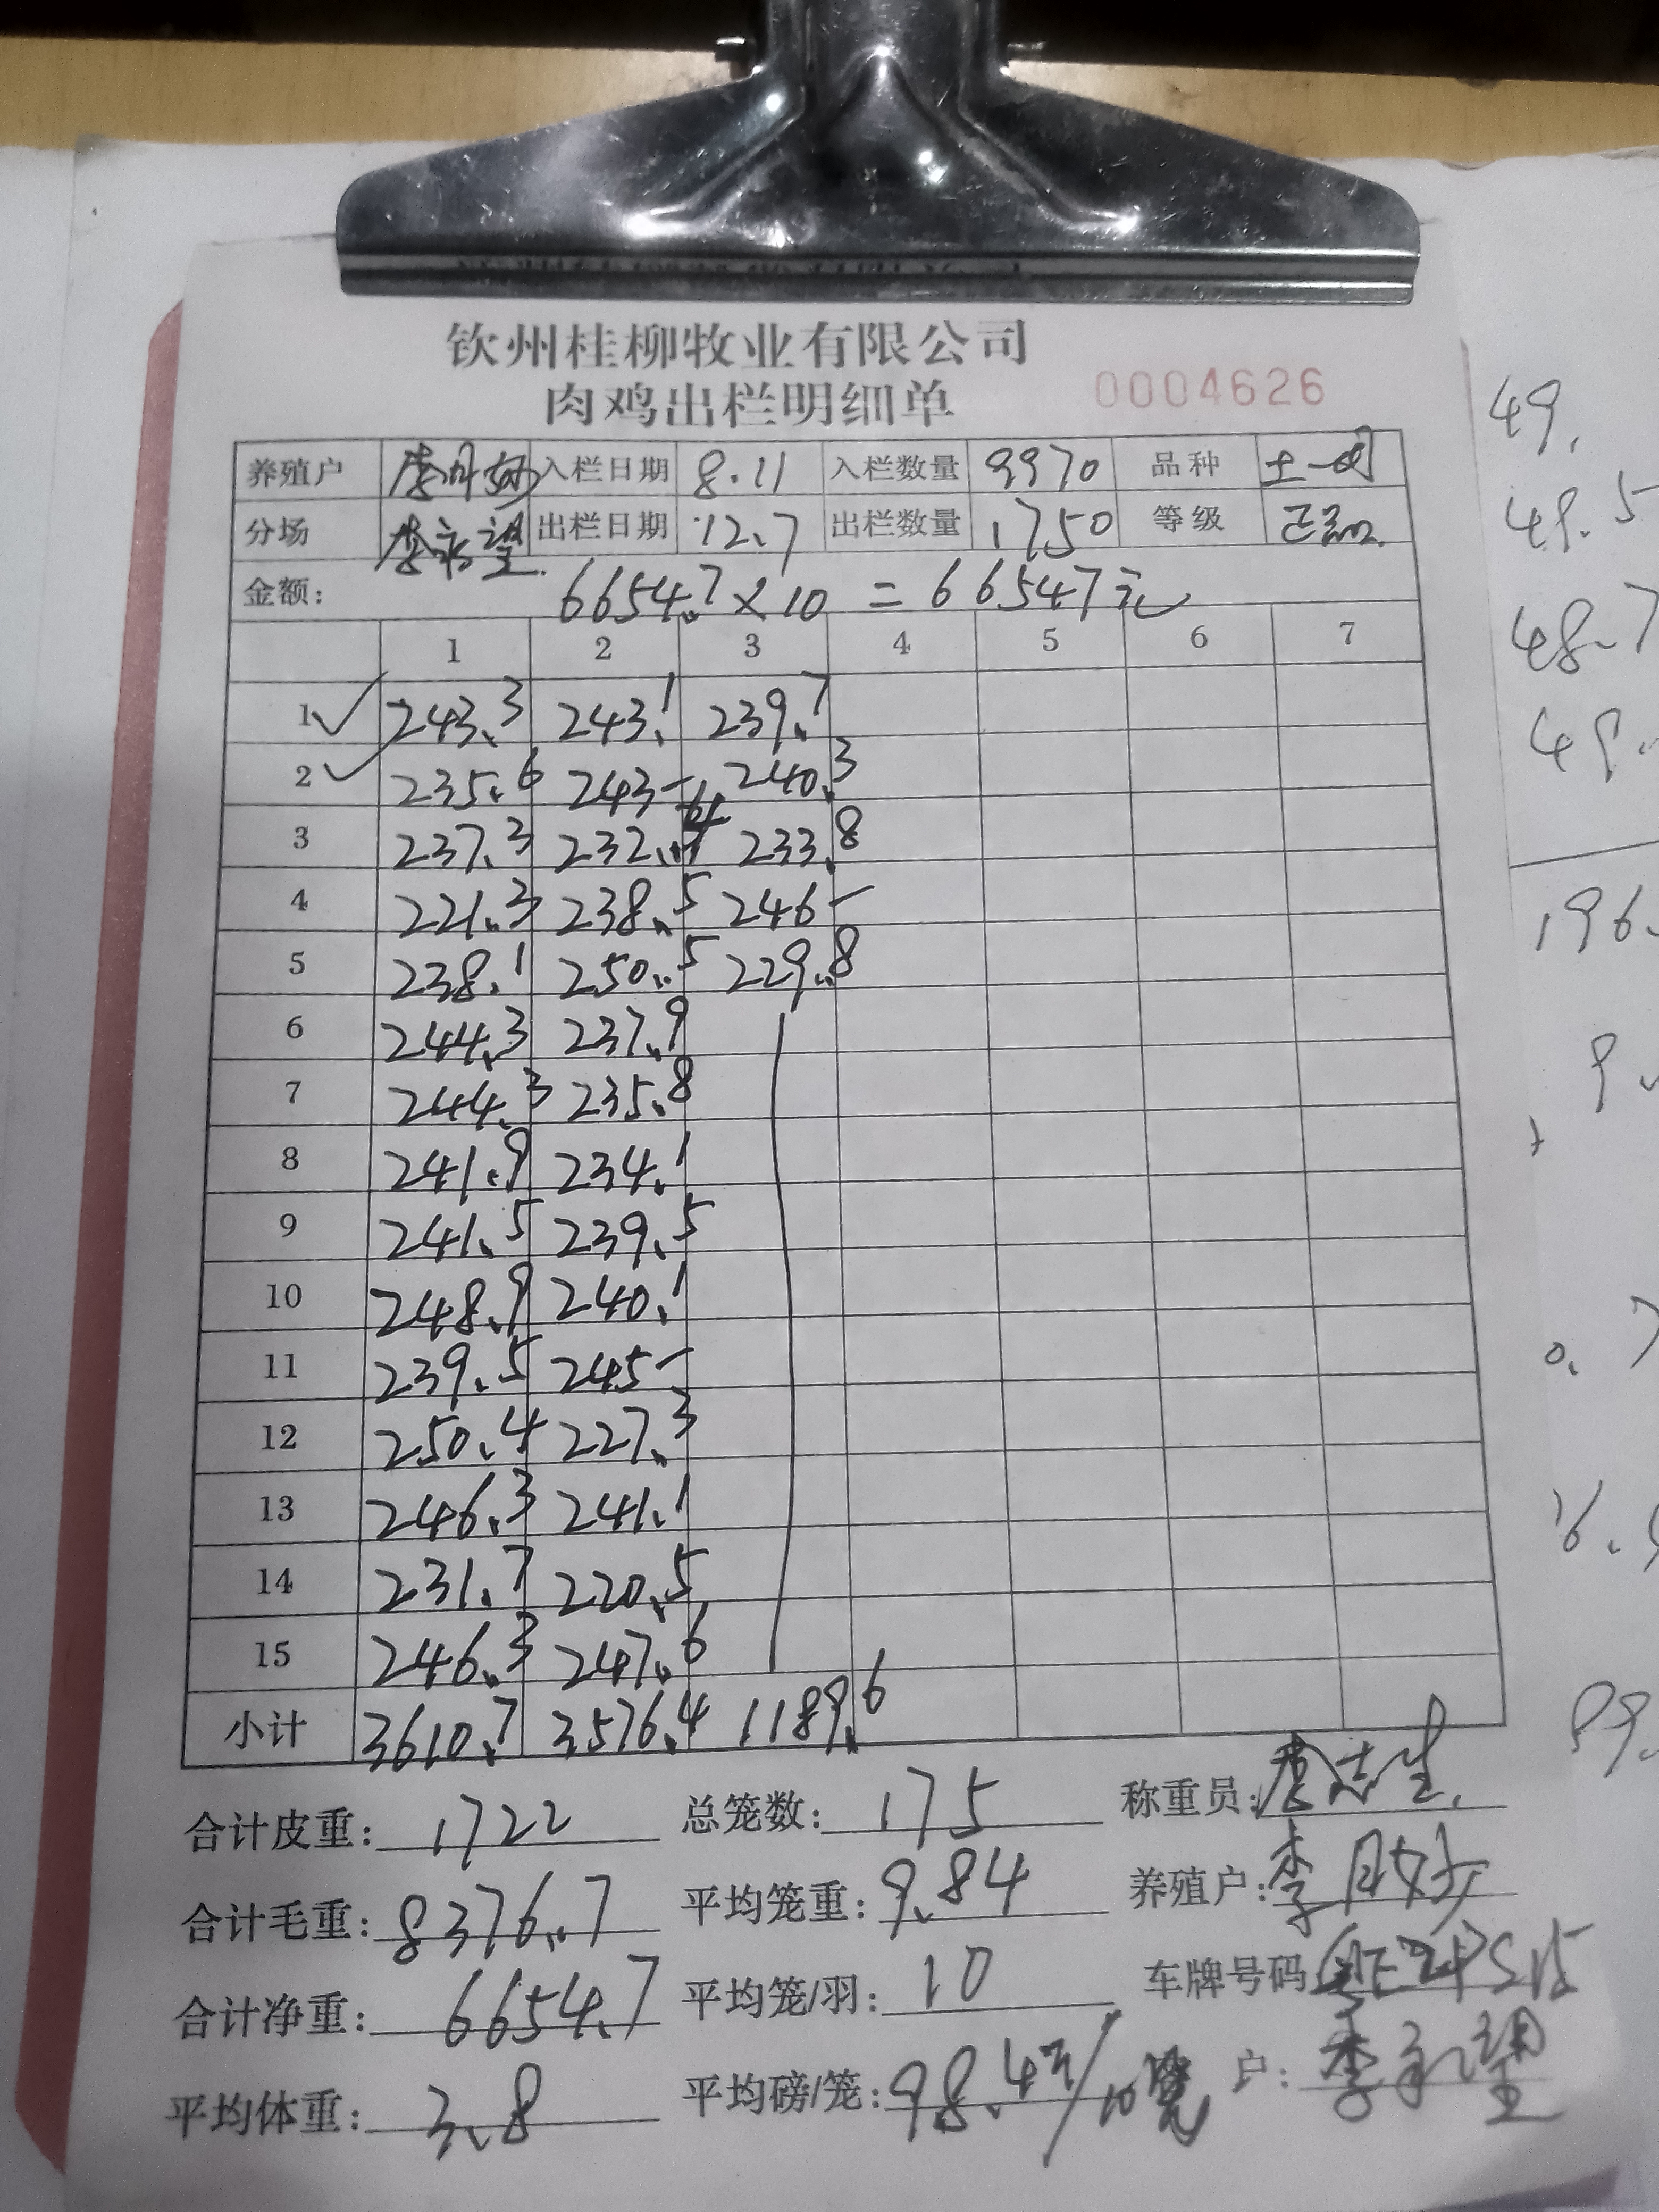 钦州桂柳牧业有限公司
肉鸡出栏明细单 0004626
养殖户 李月好 入栏日期 8.11 入栏数量 9970 品种 土一
分场 李永望 出栏日期 12.7 出栏数量 1750 等级 正品
金额: 6654.7×10=66547元
1 2 3 4 5 6 7
1 243.3 243.1 239.7
2 235.6 243- 240.3
3 237.3 232.4 233.8
4 221.3 238.5 246-
5 238.1 250.5 229.8
6 244.3 237.9
7 244.3 235.8
8 241.9 234.1
9 241.5 239.5
10 248.9 240.1
11 239.5 245-
12 250.4 227.3
13 246.3 241.1
14 231.7 220.5
15 246.3 247.6
小计 3610.7 3576.4 1189.6
合计皮重: 1722 总笼数: 175 称重员: 志生
合计毛重: 8376.7 平均笼重: 9.84 养殖户: 李月好
合计净重: 6654.7 平均笼/羽: 10 车牌号码
平均体重: 3.8 平均磅/笼: 98.4斤/10笼 户: 李永望
49.
49.5
48.7
49.
196.
9.
0.7
16.
89.